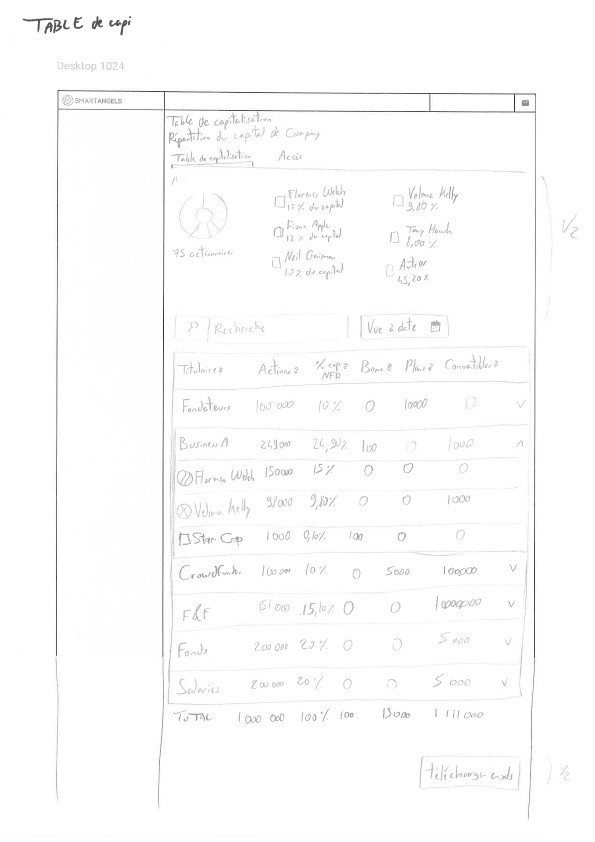 TABLE de capi
Desktop 1024
SMARTANGELS
Table de capitalisation
Répartition du capital de Company
Table de capitalisation Accès
75 actionnaires
Florence Welch
15% du capital
Fiona Apple
12% du capital
Neil Gaiman
10% du capital
Velma Kelly
9,80%
Tony Hawk
8,00%
Autres
45,20%
1/2
Recherche Vue à date
Titulaires Actions % cap NFD Bons Plans Convertibles
Fondateurs 100 000 10% 0 10000 0
Business A 249000 24,90% 100 0 1000
Florence Welch 150000 15% 0 0 0
Velma Kelly 98000 9,80% 0 0 1000
Star Cap 1000 0,10% 100 0 0
Crowdfund. 100 000 10% 0 5000 100000
F&F 151 000 15,10% 0 0 1000000
Fonds 200 000 20% 0 0 5 000
Salariés 200 000 20% 0 0 5 000
TOTAL 1 000 000 100% 100 15000 1 111 000
télécharger
1/2